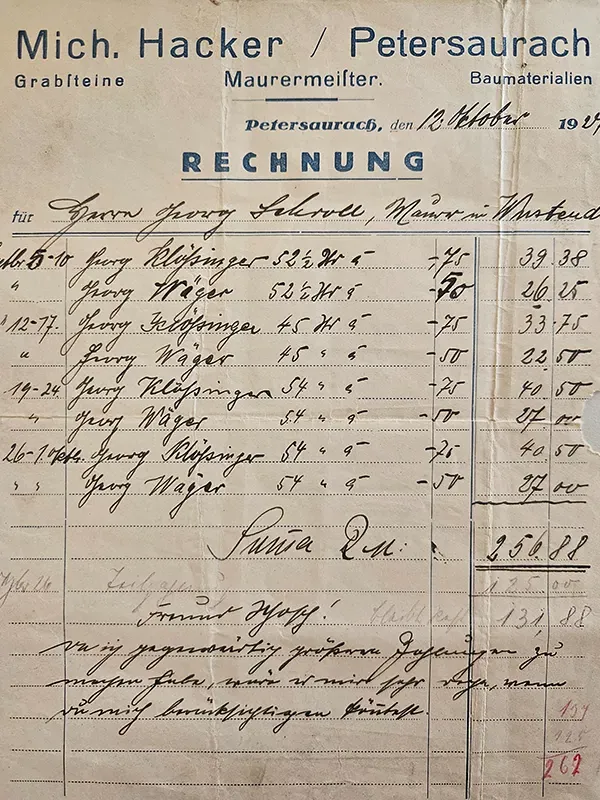 Mich. Hacker / Petersaurach
Grabſteine Maurermeiſter. Baumaterialien
Petersaurach, den 12. Oktober 192
RECHNUNG
für Herrn Georg Schroll, Maurer in Wustend
5-10 Georg Klößinger 52 ½ Str à -,75 39 38
" Georg Wäger 52 ½ Str à -50 26 25
" 12-17. Georg Klößinger 45 Str à -75 33 75
" Georg Wäger 45 " à -50 22 50
19-24 Georg Klößinger 54 " à -75 40 50
" Georg Wäger 54 " à -50 27 00
26-1. Okt. Georg Klößinger 54 " à -75 40 50
" " Georg Wäger 54 " à -50 27 00
Suma RM: 256 88
125 00
Freund Schosch! 131 88
da ich gegenwärtig größere Zahlungen zu
machen habe, wäre es mir sehr recht, wenn
du mich berücksichtigen könntest.
262